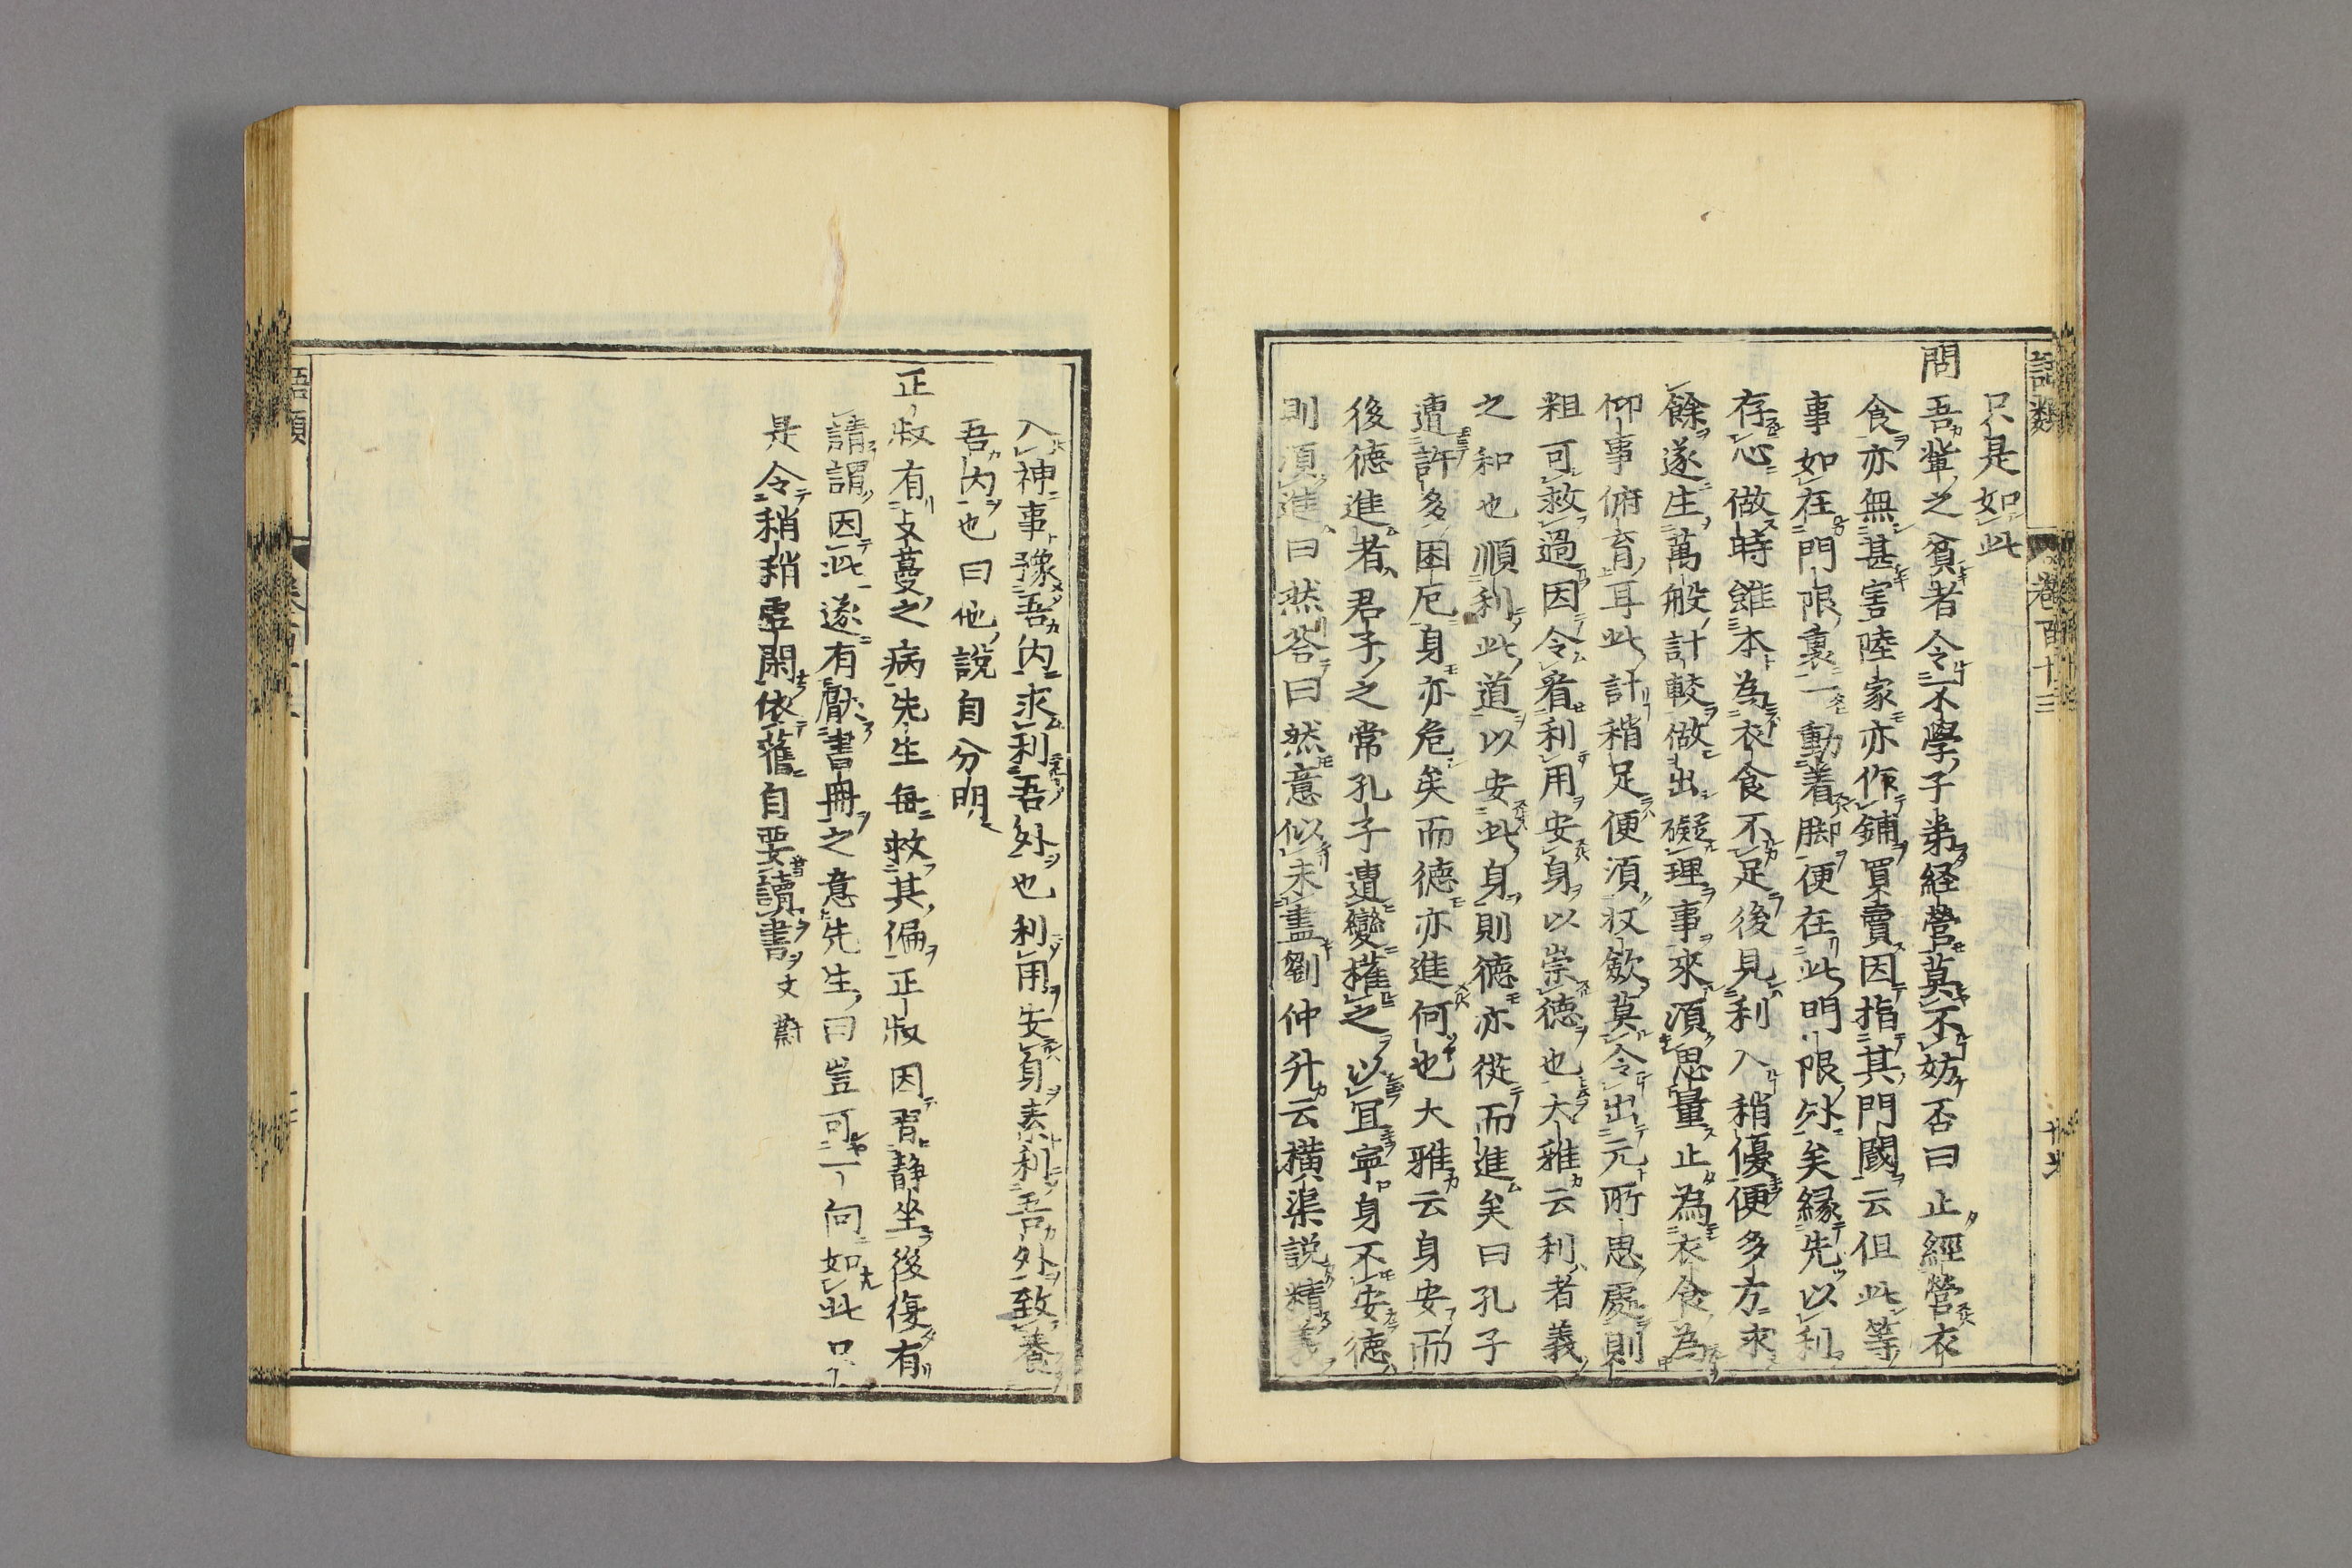 語類
卷百十三
只是如此
問吾輩之貧者令不學子弟経營莫不妨否曰止經營衣
食亦無甚害陸家亦作鋪買賣因指其門閾云但此等
事如在門限裏一動着脚便在此門限外矣縁先以利
存心做時雖本為衣食不足後見利入稍優便多方求
餘遂生萬般計較做出礙理事來須思量止為衣食為
仰事俯育耳此計稍足便須収歛莫令出元所思處則
粗可救過因令看利用安身以崇德也大雅云利者義
之和也順利此道以安此身則德亦從而進矣曰孔子
遭許多困厄身亦危矣而德亦進何也大雅云身安而
後德進者君子之常孔子遭變權之以宜寧身不安德
則須進曰然答曰然意似未盡劉仲升云横渠説精義
入神事豫吾内求利吾外也利用安身素利吾外致養
吾内也曰他說自分明
正叔有支蔓之病先生每救其偏正叔因習静坐後復有
請謂因此遂有厭書冊之意先生曰豈可一向如此只
是令稍稍虚閑依舊自要讀書文蔚
語類